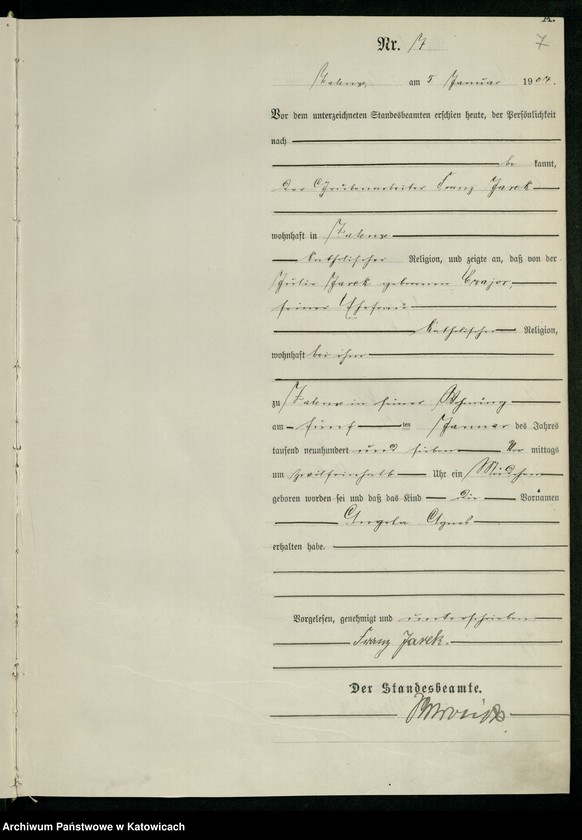 A.
Nr. 7
7
am 5 Januar 1907.
Vor dem unterzeichneten Standesbeamten erschien heute, der Persönlichkeit
nach
be kannt,
der Grubenarbeiter Franz Jarek
wohnhaft in
katholischer Religion, und zeigte an, daß von der
Julie Jarek geborenen Czajor,
seiner Ehefrau
katholischer Religion,
wohnhaft bei ihm
zu in seiner Wohnung
am fünf ten Januar des Jahres
tausend neunhundert und sieben Vor mittags
um zwölfeinhalb Uhr ein Mädchen
geboren worden sei und daß das Kind die Vornamen
Angela Agnes
erhalten habe.
Vorgelesen, genehmigt und unterschrieben
Franz Jarek.
Der Standesbeamte.
Archiwum Państwowe w Katowicach